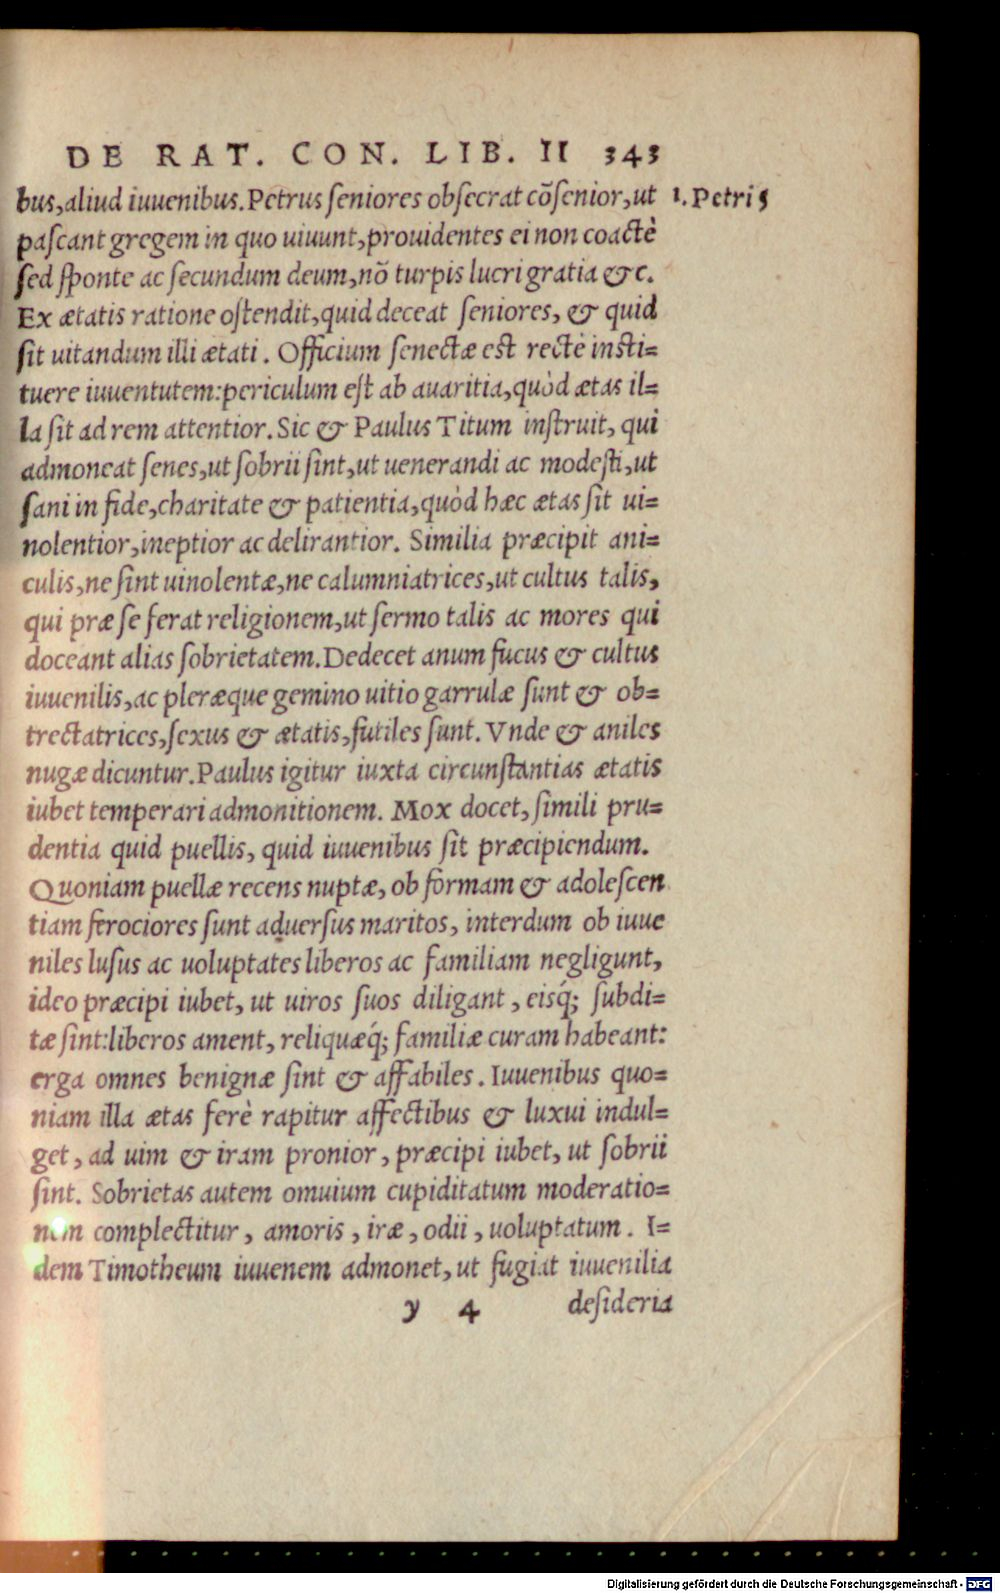 DE RAT. CON. LIB. II 343
bus, aliud iuuenibus. Petrus ſeniores obſecrat cõſenior, ut 1. Petri 5
paſcant gregem in quo uiuunt, prouidentes ei non coactè
ſed ſponte ac ſecundum deum, nõ turpis lucri gratia &c.
Ex ætatis ratione oſtendit, quid deceat ſeniores, & quid
ſit uitandum illi ætati. Officium ſenectæ eſt rectè inſti=
tuere iuuentutem: periculum eſt ab auaritia, quòd ætas il=
la ſit ad rem attentior. Sic & Paulus Titum inſtruit, qui
admoneat ſenes, ut ſobrii ſint, ut uenerandi ac modeſti, ut
ſani in fide, charitate & patientia, quòd hæc ætas ſit ui=
nolentior, ineptior ac delirantior. Similia præcipit ani=
culis, ne ſint uinolentæ, ne calumniatrices, ut cultus talis,
qui præ ſe ferat religionem, ut ſermo talis ac mores qui
doceant alias ſobrietatem. Dedecet anum fucus & cultus
iuuenilis, ac pleræque gemino uitio garrulæ ſunt & ob=
trectatrices, ſexus & ætatis, futiles ſunt. Vnde & aniles
nugæ dicuntur. Paulus igitur iuxta circunſtantias ætatis
iubet temperari admonitionem. Mox docet, ſimili pru=
dentia quid puellis, quid iuuenibus ſit præcipiendum.
Quoniam puellæ recens nuptæ, ob formam & adoleſcen
tiam ferociores ſunt aduerſus maritos, interdum ob iuue
niles luſus ac uoluptates liberos ac familiam negligunt,
ideo præcipi iubet, ut uiros ſuos diligant, eisq́; ſubdi=
tæ ſint: liberos ament, reliquæq́; familiæ curam habeant:
erga omnes benignæ ſint & affabiles. Iuuenibus quo=
niam illa ætas ferè rapitur affectibus & luxui indul=
get, ad uim & iram pronior, præcipi iubet, ut ſobrii
ſint. Sobrietas autem omuium cupiditatum moderatio=
nem complectitur, amoris, iræ, odii, uoluptatum. I=
dem Timotheum iuuenem admonet, ut fugiat iuuenilia
y 4 deſideria
Digitalisierung gefördert durch die Deutsche Forschungsgemeinschaft - DFG